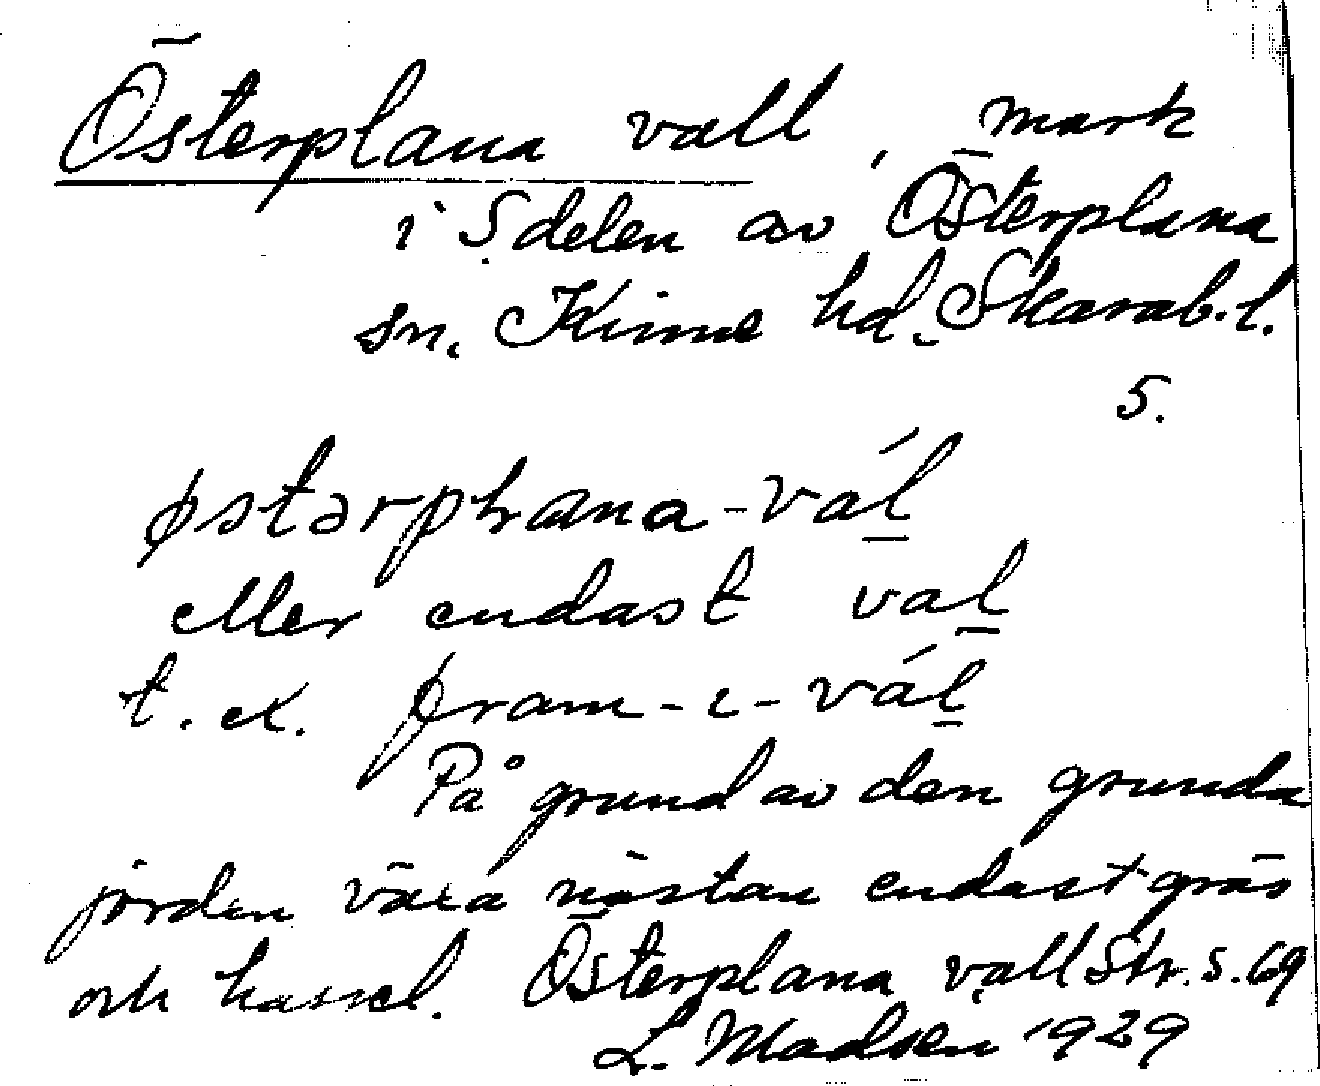 Österplana vall, mark
i S delen av Österplana
sn. Kinne hd. Skarab. l.
5.
østərpɫana-vál̲
eller endast val̲
t. ex. fram-ı-vál̲
På grund av den grunda
jorden växa nästan endast gräs
och hassel. Österplana vall Str. s. 69
L. Madsen 1929